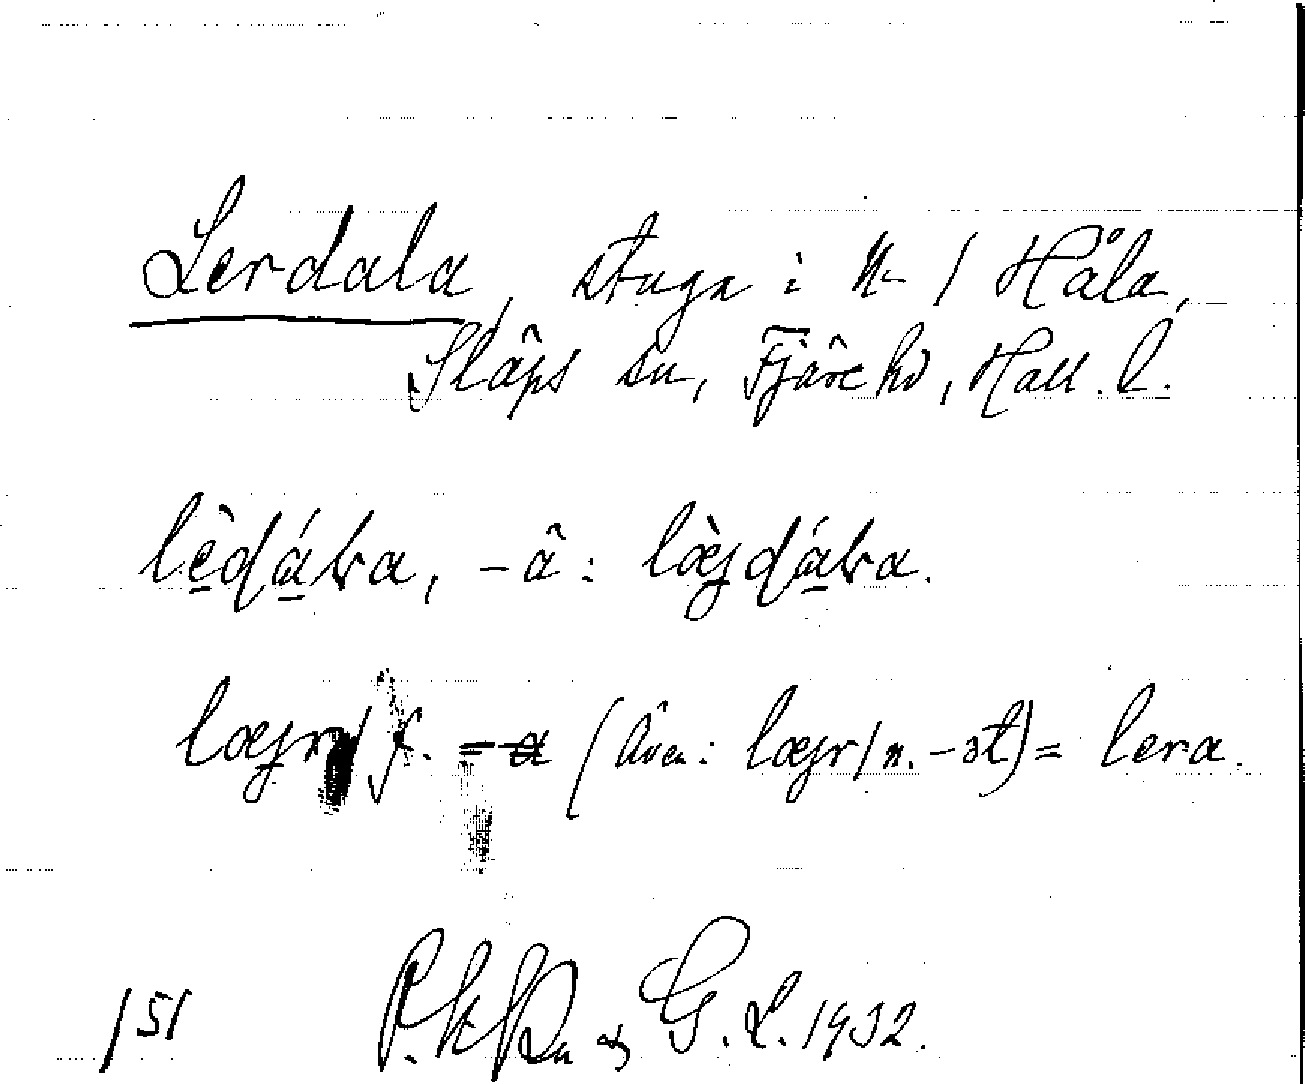 Lerdala, stuga i n. / Håla,
Släps sn, Fjäre hd, Hall. l.
lèdáƚa, -â: læ̀jdáƚa.
læjr / f. = a (även: læjr / n. -ət) = lera.
151 G. L. 1932.